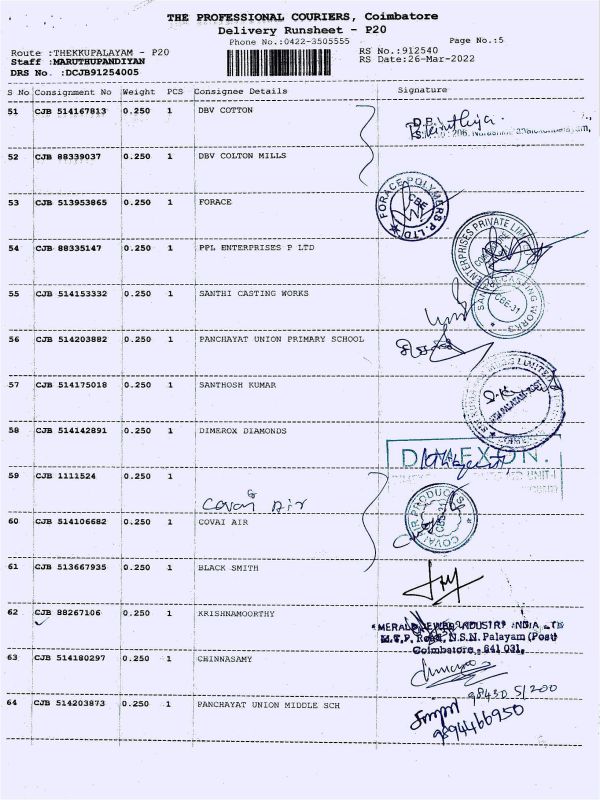 THE PROFESSIONAL COURIERS, Coimbatore
Delivery Runsheet - P20
Phone No.:0422-3505555 Page No.:5
Route :THEKKUPALAYAM - P20 RS No.:912540
Staff :MARUTHUPANDIYAN RS Date:26-Mar-2022
DRS No. :DCJB91254005
S No Consignment No Weight PCS Consignee Details Signature
51 CJB 514167813 0.250 1 DBV COTTON
52 CJB 88339037 0.250 1 DBV COLTON MILLS
53 CJB 513953865 0.250 1 FORACE
FORACE POLYMERS P LTD CBE
54 CJB 88335147 0.250 1 PPL ENTERPRISES P LTD
ENTERPRISES PRIVATE
55 CJB 514153332 0.250 1 SANTHI CASTING WORKS
CASTING WORKS CBE-31
56 CJB 514203882 0.250 1 PANCHAYAT UNION PRIMARY SCHOOL
57 CJB 514175018 0.250 1 SANTHOSH KUMAR
58 CJB 514142891 0.250 1 DIMEROX DIAMONDS
59 CJB 1111524 0.250 1
Covai Air
60 CJB 514106682 0.250 1 COVAI AIR
COVAI AIR PRODUCTS
61 CJB 513667935 0.250 1 BLACK SMITH
62 CJB 88267106 0.250 1 KRISHNAMOORTHY
M.T.P. Road, N.S.N. Palayam (Post)
Coimbatore - 641 031.
63 CJB 514180297 0.250 1 CHINNASAMY
98430 51200
64 CJB 514203873 0.250 1 PANCHAYAT UNION MIDDLE SCH
9894466950